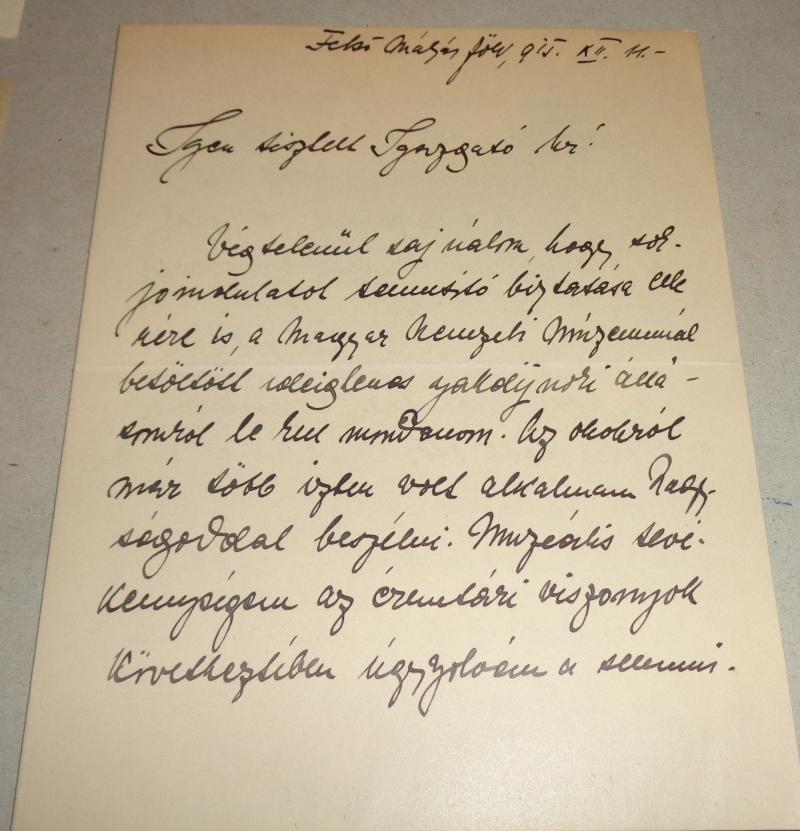 Felső Mátyásföld, 915. XII. 11.-
Igen tisztelt Igazgató Úr!
Végtelenül sajnálom, hogy, sok
jóindulatot tanusító biztatása elle-
nére is, a Magyar Nemzeti Múzeumnál
betöltött ideiglenes gyakdíjnoki állá-
somról le kell mondanom. Az okokról
már több izben volt alkalmam Nagy-
ságoddal beszélni. Muzeális tevé-
kenységem az éremtári viszonyok
következtében úgyszólván a semmi-